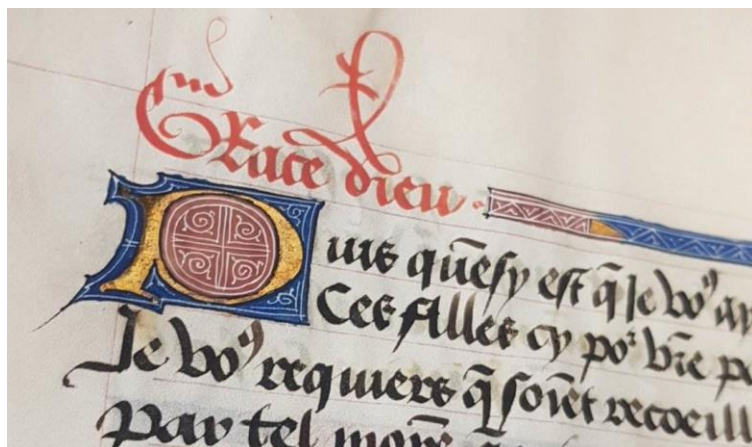 Grace dieu.
Puis qūesy est q̄ Je voꝰ ay
Ces filles cy poʳ vr̄e pe
Je voꝰ requiers q̄ soīēt recoeill
Par tel